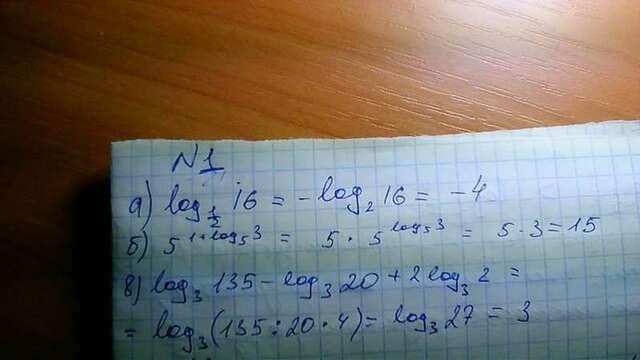 №1
а) log₁/₂ 16 = -log₂ 16 = -4
б) 5^(1+log₅3) = 5 · 5^(log₅3) = 5 · 3 = 15
в) log₃ 135 - log₃ 20 + 2 log₃ 2 =
= log₃(135 : 20 · 4) = log₃ 27 = 3